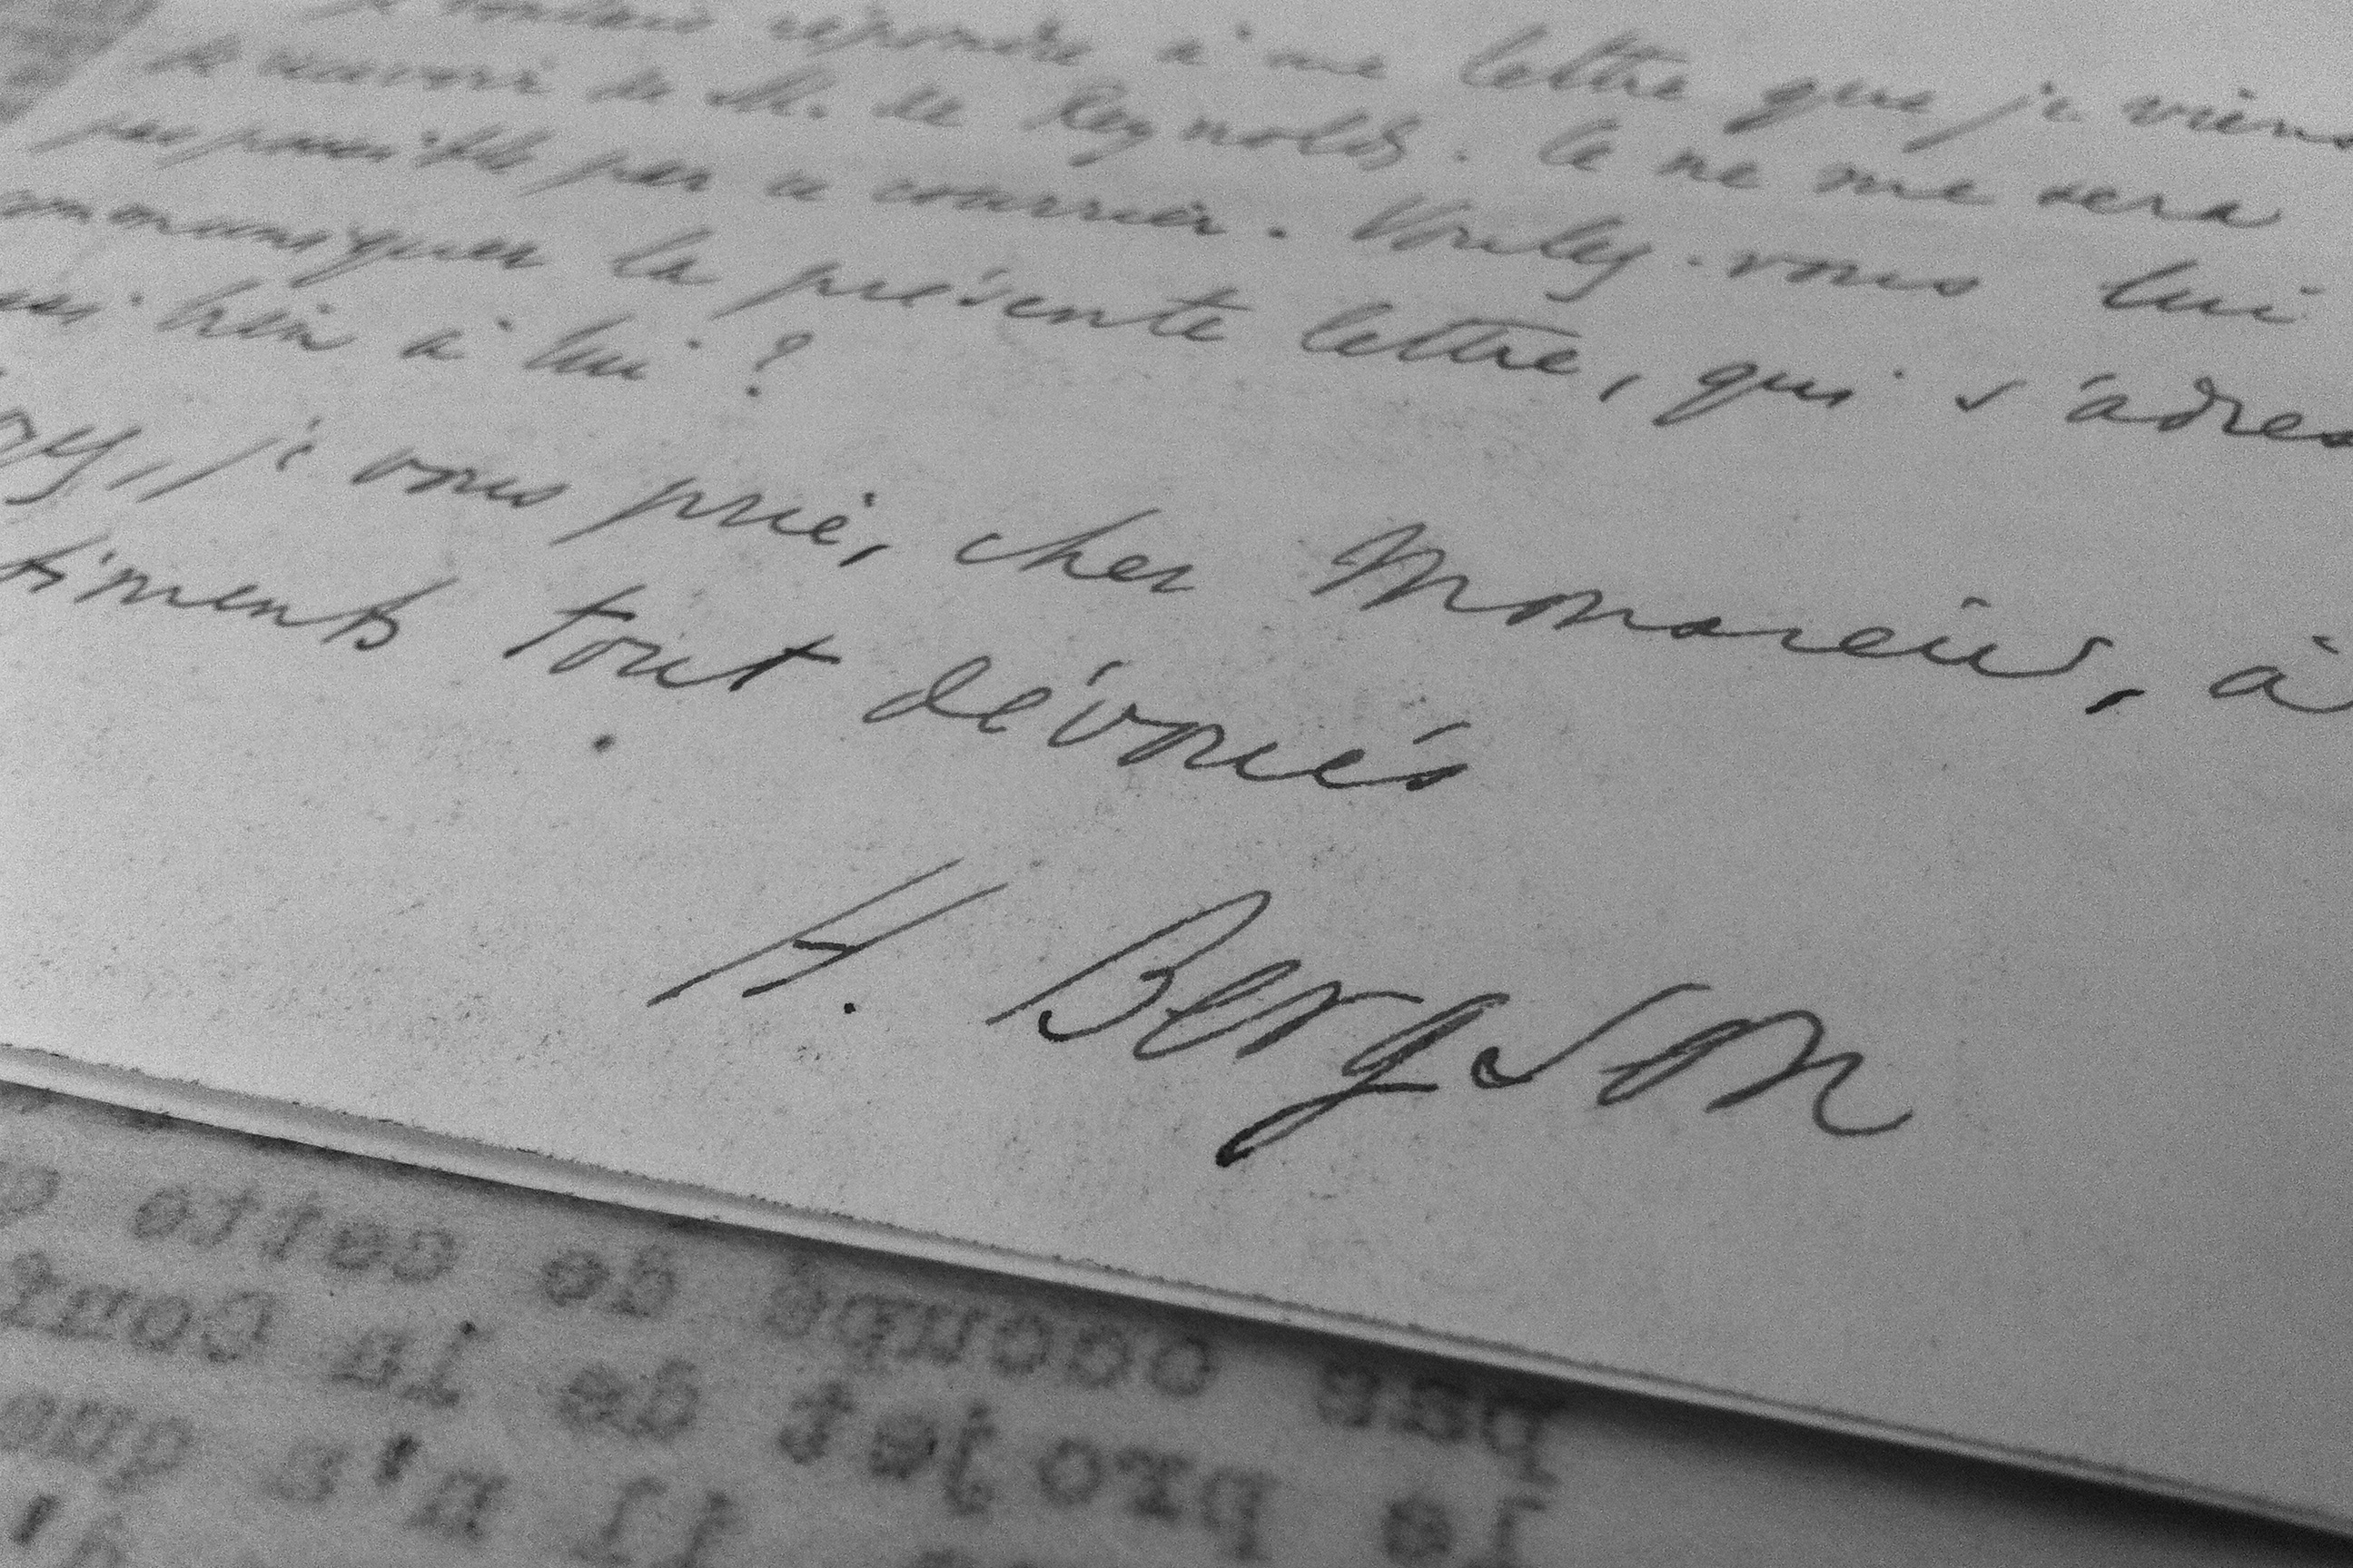 voulais répondre à une lettre que je viens
de recevoir de M. de Reynolds. Ce ne me sera
pas possible par ce courrier. Voulez-vous lui
communiquer la présente lettre, qui s'adres
bien à lui ?
je vous prie, cher Monsieur, à
timents tout dévoués
H. Bergson
pas occupé de cette
le projet de la Cour
il n'a que